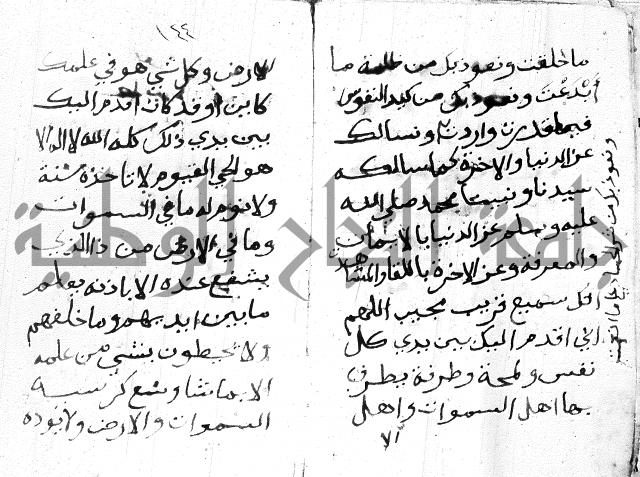 ما خلقت ونعوذ بك من ظلمة ما
أبدعت ونعوذ بك من كيد النفوس
فيما قدرت واردت ونسالك
عز الدنيا والاخرة كما سالكه
سيدنا ونبينا محمد صلى الله
عليه وسلم عز الدنيا بالايمان
والمعرفة وعز الاخرة باللقا والمشاهدة
انك سميع قريب مجيب اللهم
اني اقدم اليك بين يدي كل
نفس ولمحة وطرفة يطرف
بها اهل السموات واهل
الا
ونعوذ بك من شر
١٤٤
الارض وكل شي هو في علمك
كاين او قد كان اقدم اليك
بين يدي ذلك كله الله لا اله الا
هو الحي القيوم لا تاخذه سنة
ولا نوم له ما في السموات
وما في الارض من ذا الذي
يشفع عنده الا باذنه يعلم
ما بين ايديهم وما خلفهم
ولا يحيطون بشي من علمه
الا بما شا وسع كرسيه
السموات والارض ولا يوده
جامعة النجاح الوطنية